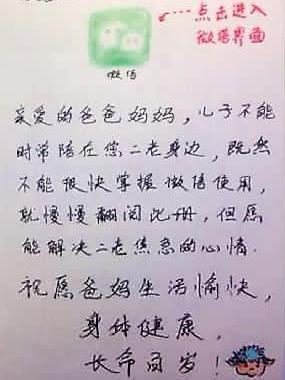 点击进入
微信界面
微信
亲爱的爸爸妈妈，儿子不能
时常陪在您二老身边，既然
不能很快掌握微信使用，
就慢慢翻阅此册，但愿
能解决二老焦急的心情．
祝愿爸妈生活愉快，
身体健康，
长命百岁！